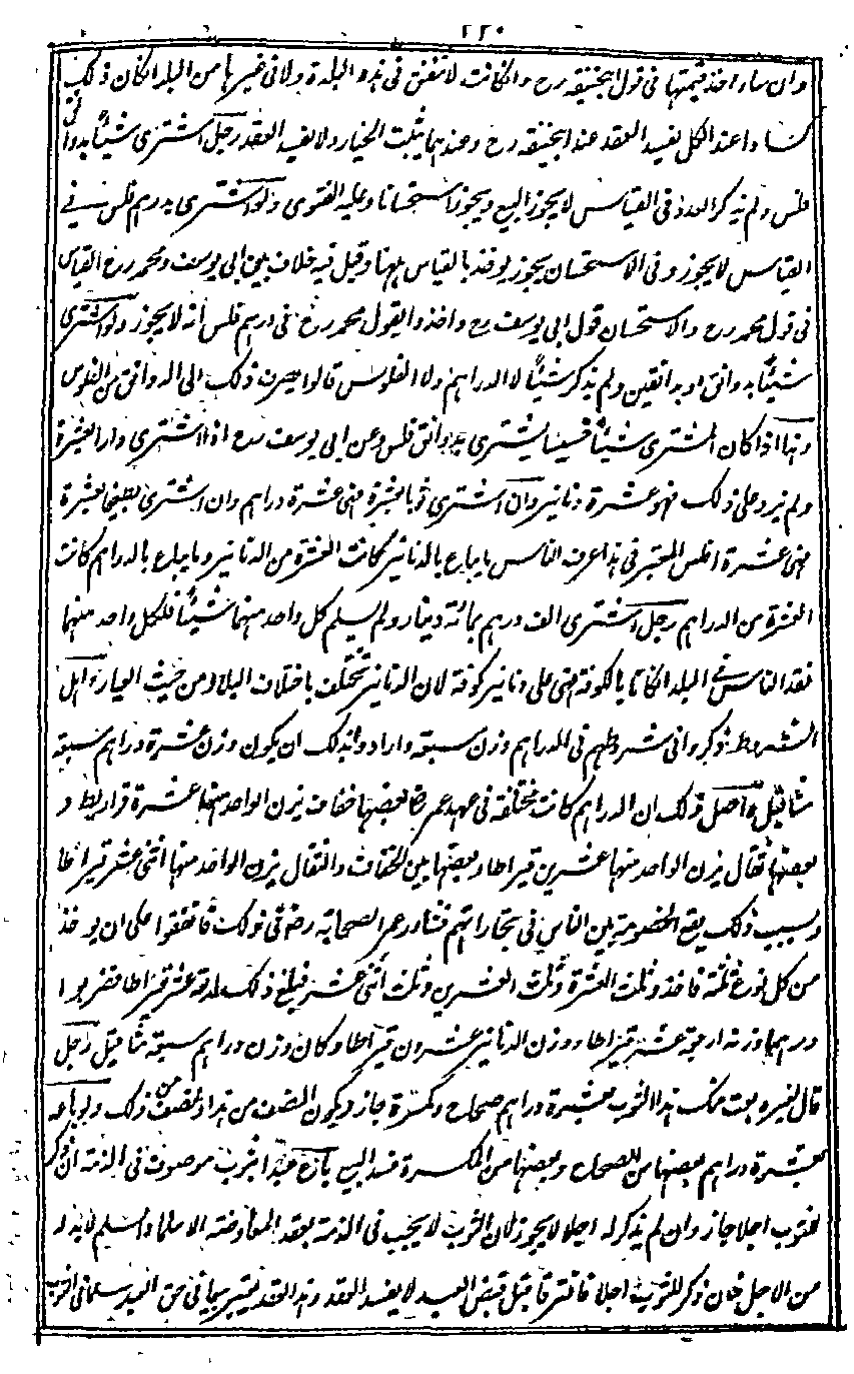 ٢٢٠
وان شاء اخذ قيمتها فى قول ابيحنيفه رح وان كانت لا تنفق فى هذه البلدة ولا فى غيرها من البلدان كان ذلك
كسادا عند الكل يفسد العقد عند ابيحنيفه رح وعندهما يثبت الخيار ولا يفسد العقد رجل اشترى شيئا بدوانق
فلس ولم يذكر العدد فى القياس لا يجوز البيع ويجوز استحسانا وعليه الفتوى ولو اشترى بدرهم فلس ففى
القياس لا يجوز وفى الاستحسان يجوز يوخذ بالقياس ههنا وقيل فيه خلاف بين ابى يوسف ومحمد رح القياس
فى قول محمد رح والاستحسان قول ابى يوسف رح واخذوا بقول محمد رح فى درهم فلس انه لا يجوز ولو اشترى
شيئا بدوانق او بدانقين ولم يذكر شيئا لا الدراهم ولا الفلوس قالوا يصرف ذلك الى الدوانق من الفلوس
وهذا اذا كان المشترى شيئا خسيسا يشترى بدوانق فلس وعن ابى يوسف رح اذا اشترى دارا بعشرة
ولم يزد على ذلك فهو عشرة دنانير وان اشترى ثوبا بعشرة فهى عشرة دراهم وان اشترى بطيخا بعشرة
فهى عشرة افلس المعتبر فى هذا عرف الناس ما يباع بالدنانير كانت العشرة من الدنانير وما يباع بالدراهم كانت
العشرة من الدراهم رجل اشترى الف درهم بمائة دينار ولم يسلم كل واحد منهما شيئا فلكل واحد منهما
نقد الناس فى البلد ان كانا بالكوفة فهى على دنانير كوفة لان الدنانير تختلف باختلاف البلاد من حيث العيار واهل
الشروط ذكروا فى شروطهم فى الدراهم وزن سبعة وارادوا بذلك ان يكون وزن عشرة دراهم سبعة
مثاقيل واصل ذلك ان الدراهم كانت مختلفة فى عهد عمر رض بعضها خفاف يزن الواحد منها عشرة قراريط و
بعضها ثقال يزن الواحد منها عشرين قيراطا وبعضها بين الخفاف والثقال يزن الواحد منها اثنى عشر قيراطا
وبسبب ذلك يقع الخصومة بين الناس فى تجاراتهم فشاور عمر الصحابة رض فى ذلك فاتفقوا على ان يوخذ
من كل نوع ثلثه فاخذوا ثلث العشرة وثلث العشرين وثلث اثنى عشر فبلغ ذلك اربعة عشر قيراطا فضربوا
درهما وزنه اربعة عشر قيراطا ووزن الدنانير عشرون قيراطا وكان وزن دراهم سبعة مثاقيل رجل
قال لغيره بعت منك هذا الثوب بعشرة دراهم صحاح وكسرة جاز ويكون النصف من هذا والنصف من ذلك ولو باعه
بعشرة دراهم بعضها من الصحاح وبعضها من الكسرة فسد البيع باع عبدا بثوب موصوف فى الذمة ان ذكر
للثوب اجلا جاز وان لم يذكر له اجلا لا يجوز لان الثوب لا يجب فى الذمة بعقد المعاوضة الا سلما والسلم لا بد له
من الاجل فان ذكر للثوب اجلا فافترقا قبل قبض العبد لا يفسد العقد وهذا العقد يعتبر بيعا فى حق العبد سلما فى الثوب